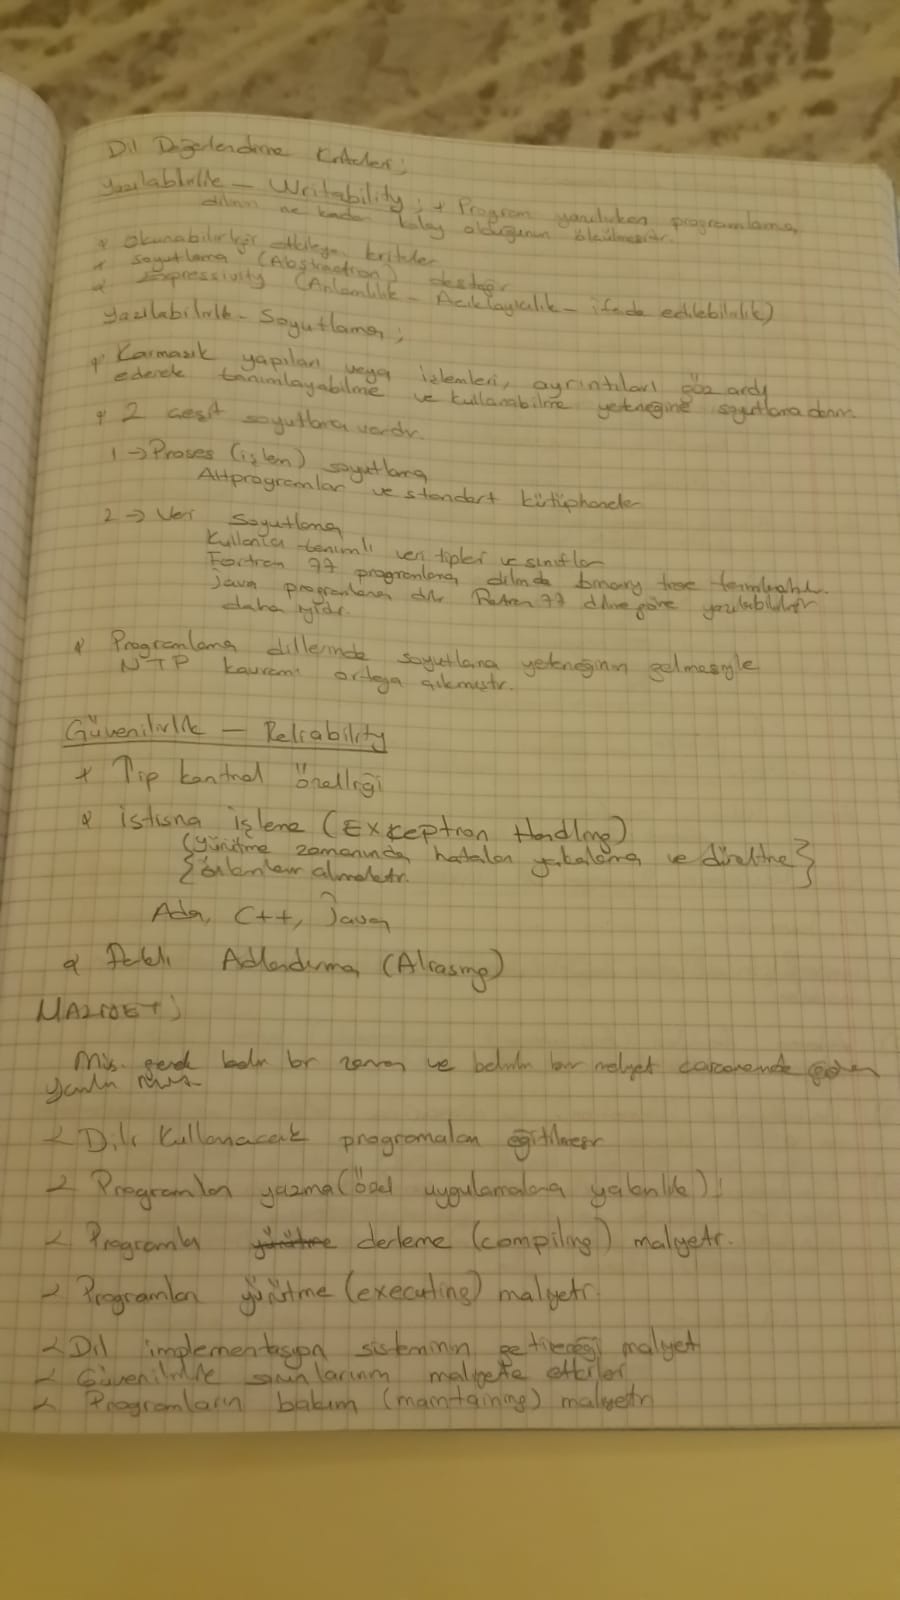 Dil Değerlendirme Kriterleri;
Yazılabilirlik - Writability : * Program yazılırken programlama
dilinin ne kadar kolay olduğunun ölçülmesidir.
* Okunabilirliği etkileyen kriterler
* Soyutlama (Abstraction) desteği
* Expressivity (Anlamlılık - Açıklayıcılık - ifade edilebilirlik)
Yazılabilirlik - Soyutlama;
* Karmaşık yapıları veya işlemleri, ayrıntıları göz ardı
ederek tanımlayabilme ve kullanabilme yeteneğine soyutlama denir.
* 2 çeşit soyutlama vardır.
1 -> Proses (işlem) soyutlama
Altprogramlar ve standart kütüphaneler
2 -> Veri soyutlama
Kullanıcı tanımlı veri tipleri ve sınıflar
Fortran 77 programlama dilinde binary tree
Java programlama dili 77 diline göre yazılabilirliği
daha iyidir.
* Programlama dillerinde soyutlama yeteneğinin gelmesiyle
NTP kavramı ortaya çıkmıştır.
Güvenilirlik - Reliability
* Tip kontrol özelliği
* istisna işleme (Exkeption Handling)
(yürütme zamanında hataları yakalama ve düzeltme }
{ önlemler almaktır.
Ada, C++, Java
* Farklı Adlandırma (Aliasing)
MALİYET;
bir zaman ve belirli bir maliyet
< Dili Kullanacak programcıları eğitilmesi
< Programları yazma (özel uygulamalara yakınlık)
< Programları yürütme derleme (compiling) maliyeti.
< Programları yürütme (executing) maliyeti.
< Dil implementasyon sisteminin getireceği maliyet
< Güvenilirlik sorunlarının maliyete etkileri
< Programların bakım (maintaining) maliyeti